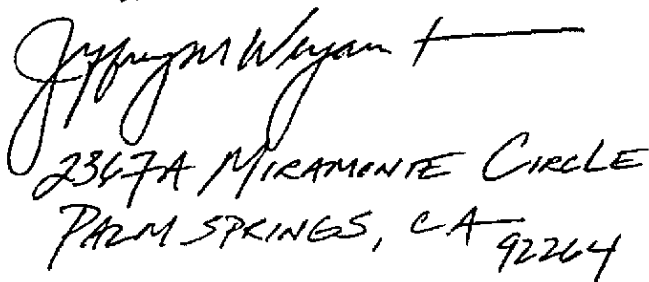 Jeffrey M Weyant
2367A MIRAMONTE CIRCLE
PALM SPRINGS, CA 92264